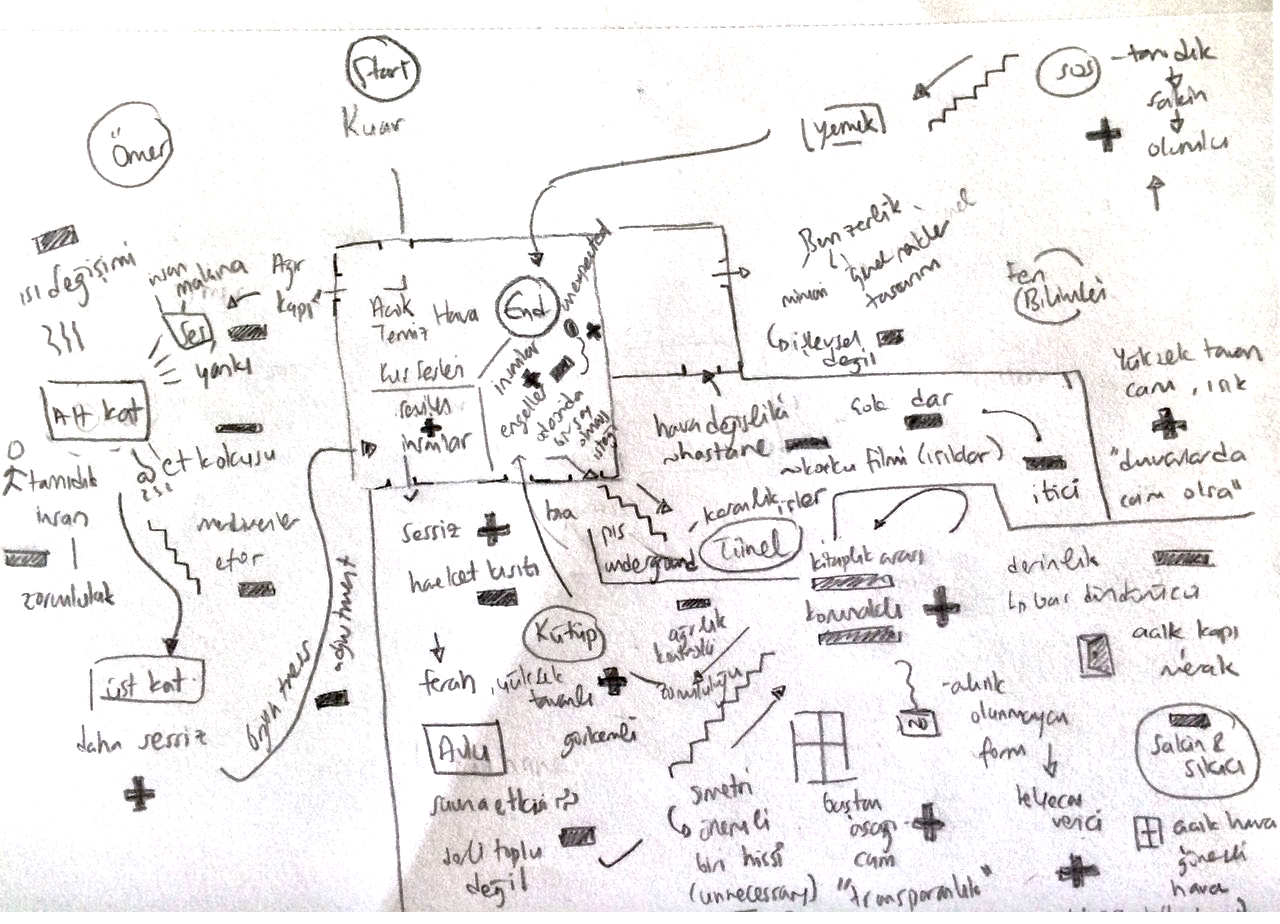 Start
Kuar
Ömer
ısı değişimi
insan
makina
Ağır
kapı
Ses
yankı
Alt kat
et kokusu
tanıdık
insan
zorunluluk
merdivenler
efor
üst kat
daha sessiz
brightness
adjustment
Açık
Temiz Hava
Kuş Sesleri
insanlar
End
unexpected
insanlar
engeller
ortasında
bir şey
olması
isteği
yemek
SOS
- tanıdık
sakin
olumlu
Benzerlik
mimari
tasarım
işlevsel
değil
Fen
Bilimleri
Yüksek tavan
cam, ışık
"duvarlarda
cam olsa"
hava değişikliği
~hastane
~korku filmi (ışıklar)
Çok dar
itici
sessiz
hareket kısıtı
ferah
Avlu
sauna etkisi
derli toplu
değil
bina
pis
underground
karanlık, işler
Tünel
Kütüp
yüksek
tavanlı
görkemli
ağırlık
kontrolü
zorunluluğu
simetri
önemli
bir hissi
(unnecessary)
kitaplık arası
korunaklı
baştan
aşağı
cam
"transparanlık"
NO
- alışık
olunmayan
form
heyecan
verici
derinlik
baş döndürücü
açık kapı
merak
Sakin &
sıkıcı
açık hava
güneşli
hava